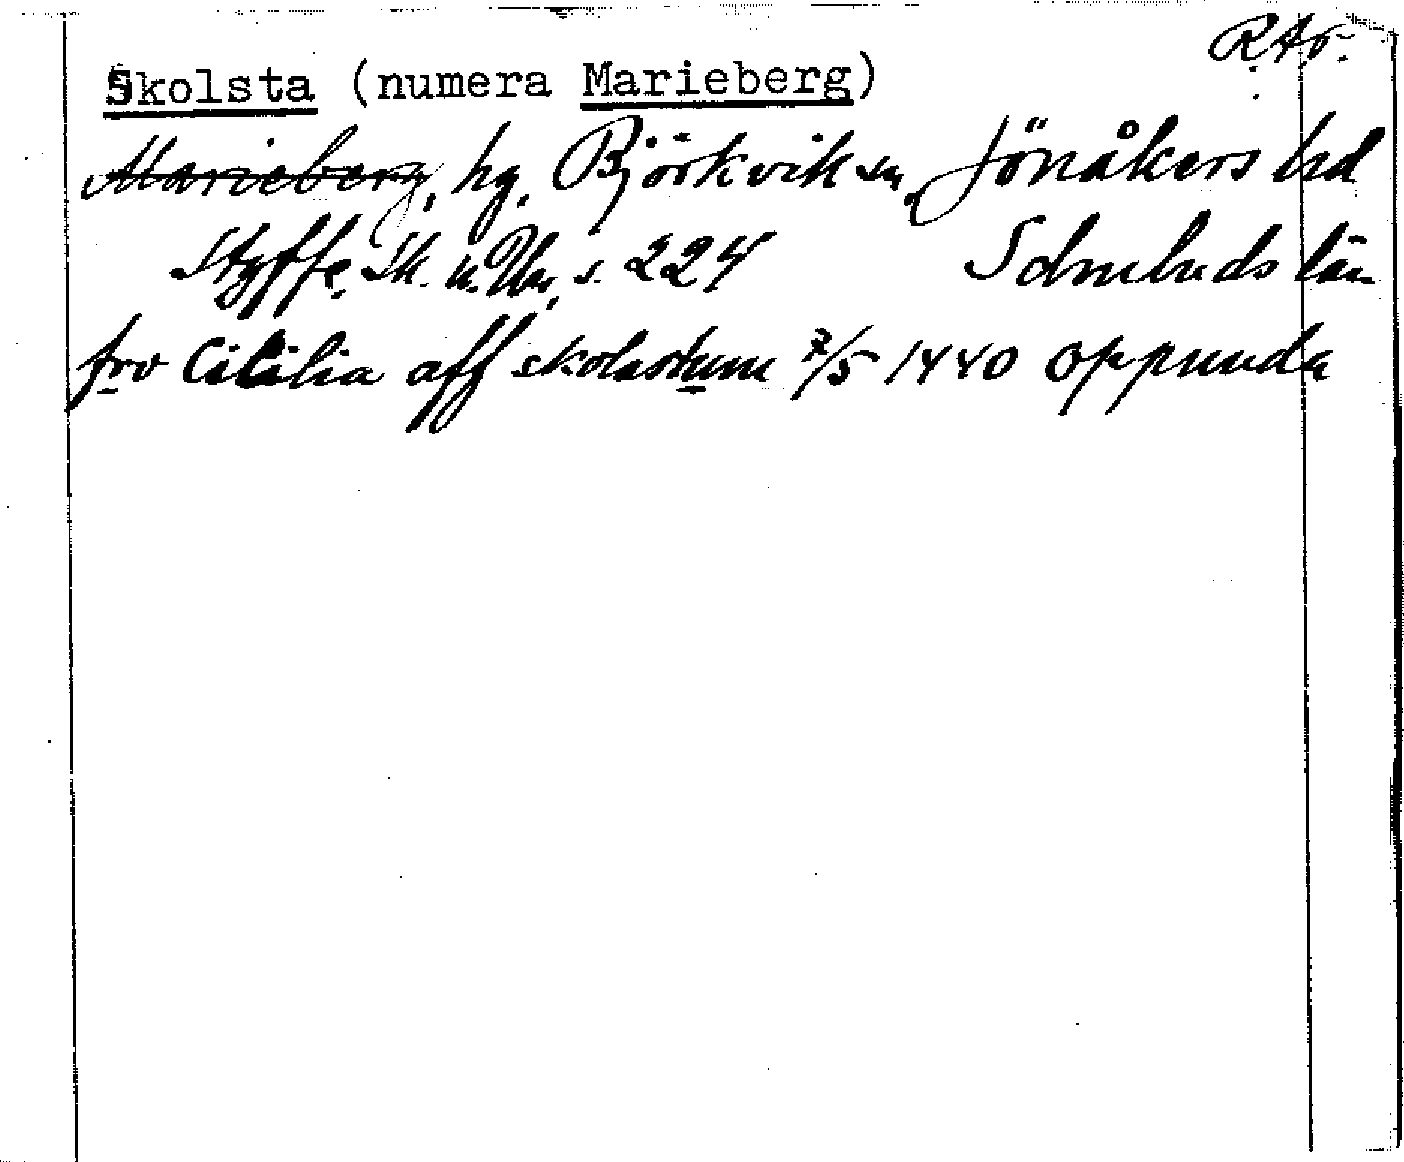 RAp.
Skolsta (numera Marieberg)
Marieberg, hg, Björkvik sn, Jönåkers hd
Styffe, Sk. u. Un, s. 224 Sdmlnds län
frv Cicilia aff skolastum 7/5 1440 Oppunda